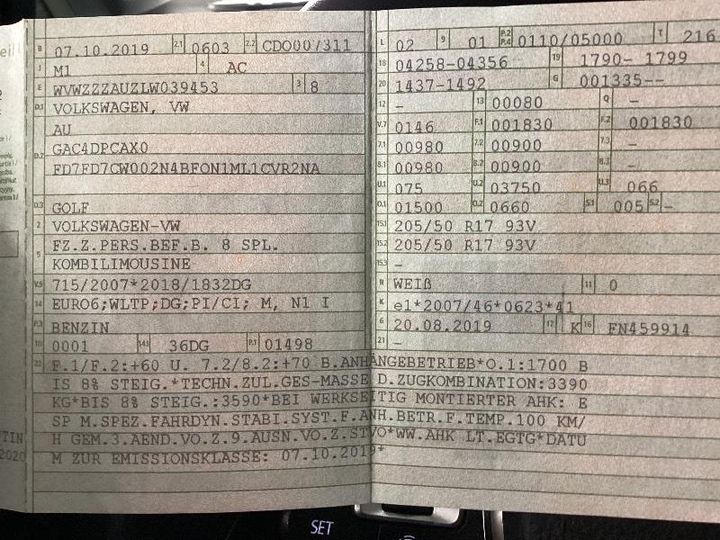 B 07.10.2019 2.1 0603 2.2 CDO007311
J M1 4 AC
E WVWZZZAUZLW039453 3 8
D.1 VOLKSWAGEN, VW
AU
D.2 GAC4DPCAX0
FD7FD7CW002N4BFON1ML1CVR2NA
D.3 GOLF
2 VOLKSWAGEN-VW
5 FZ.Z.PERS.BEF.B. 8 SPL.
KOMBILIMOUSINE
V.9 715/2007*2018/1832DG
14 EURO6;WLTP;DG;PI/CI; M, N1 I
P.3 BENZIN
10 0001 14.1 36DG P.1 01498
L 02 9 01 P.2 P.4 0110/05000 T 216
18 04258-04356 19 1790- 1799
20 1437-1492 G 001335--
12 - 13 00080 Q -
V.7 0146 F.1 001830 F.2 001830
7.1 00980 7.2 00900 7.3 -
8.1 00980 8.2 00900 8.3 -
U.1 075 U.2 03750 U.3 066
O.1 01500 O.2 0660 S.1 005 S.2 -
15.1 205/50 R17 93V
15.2 205/50 R17 93V
15.3 -
R WEIß 11 0
K e1*2007/46*0623*41
6 20.08.2019 17 K 16 FN459914
21 -
22 F.1/F.2:+60 U. 7.2/8.2:+70 B.ANHÄNGEBETRIEB*O.1:1700 B
IS 8% STEIG.*TECHN.ZUL.GES-MASSE D.ZUGKOMBINATION:3390
KG*BIS 8% STEIG.:3590*BEI WERKSEITIG MONTIERTER AHK: E
SP M.SPEZ.FAHRDYN.STABI.SYST.F.ANH.BETR.F.TEMP.100 KM/
H GEM.3.AEND.VO.Z.9.AUSN.VO.Z.STVO*WW.AHK LT.EGTG*DATU
M ZUR EMISSIONSKLASSE: 07.10.2019*
2020
SET